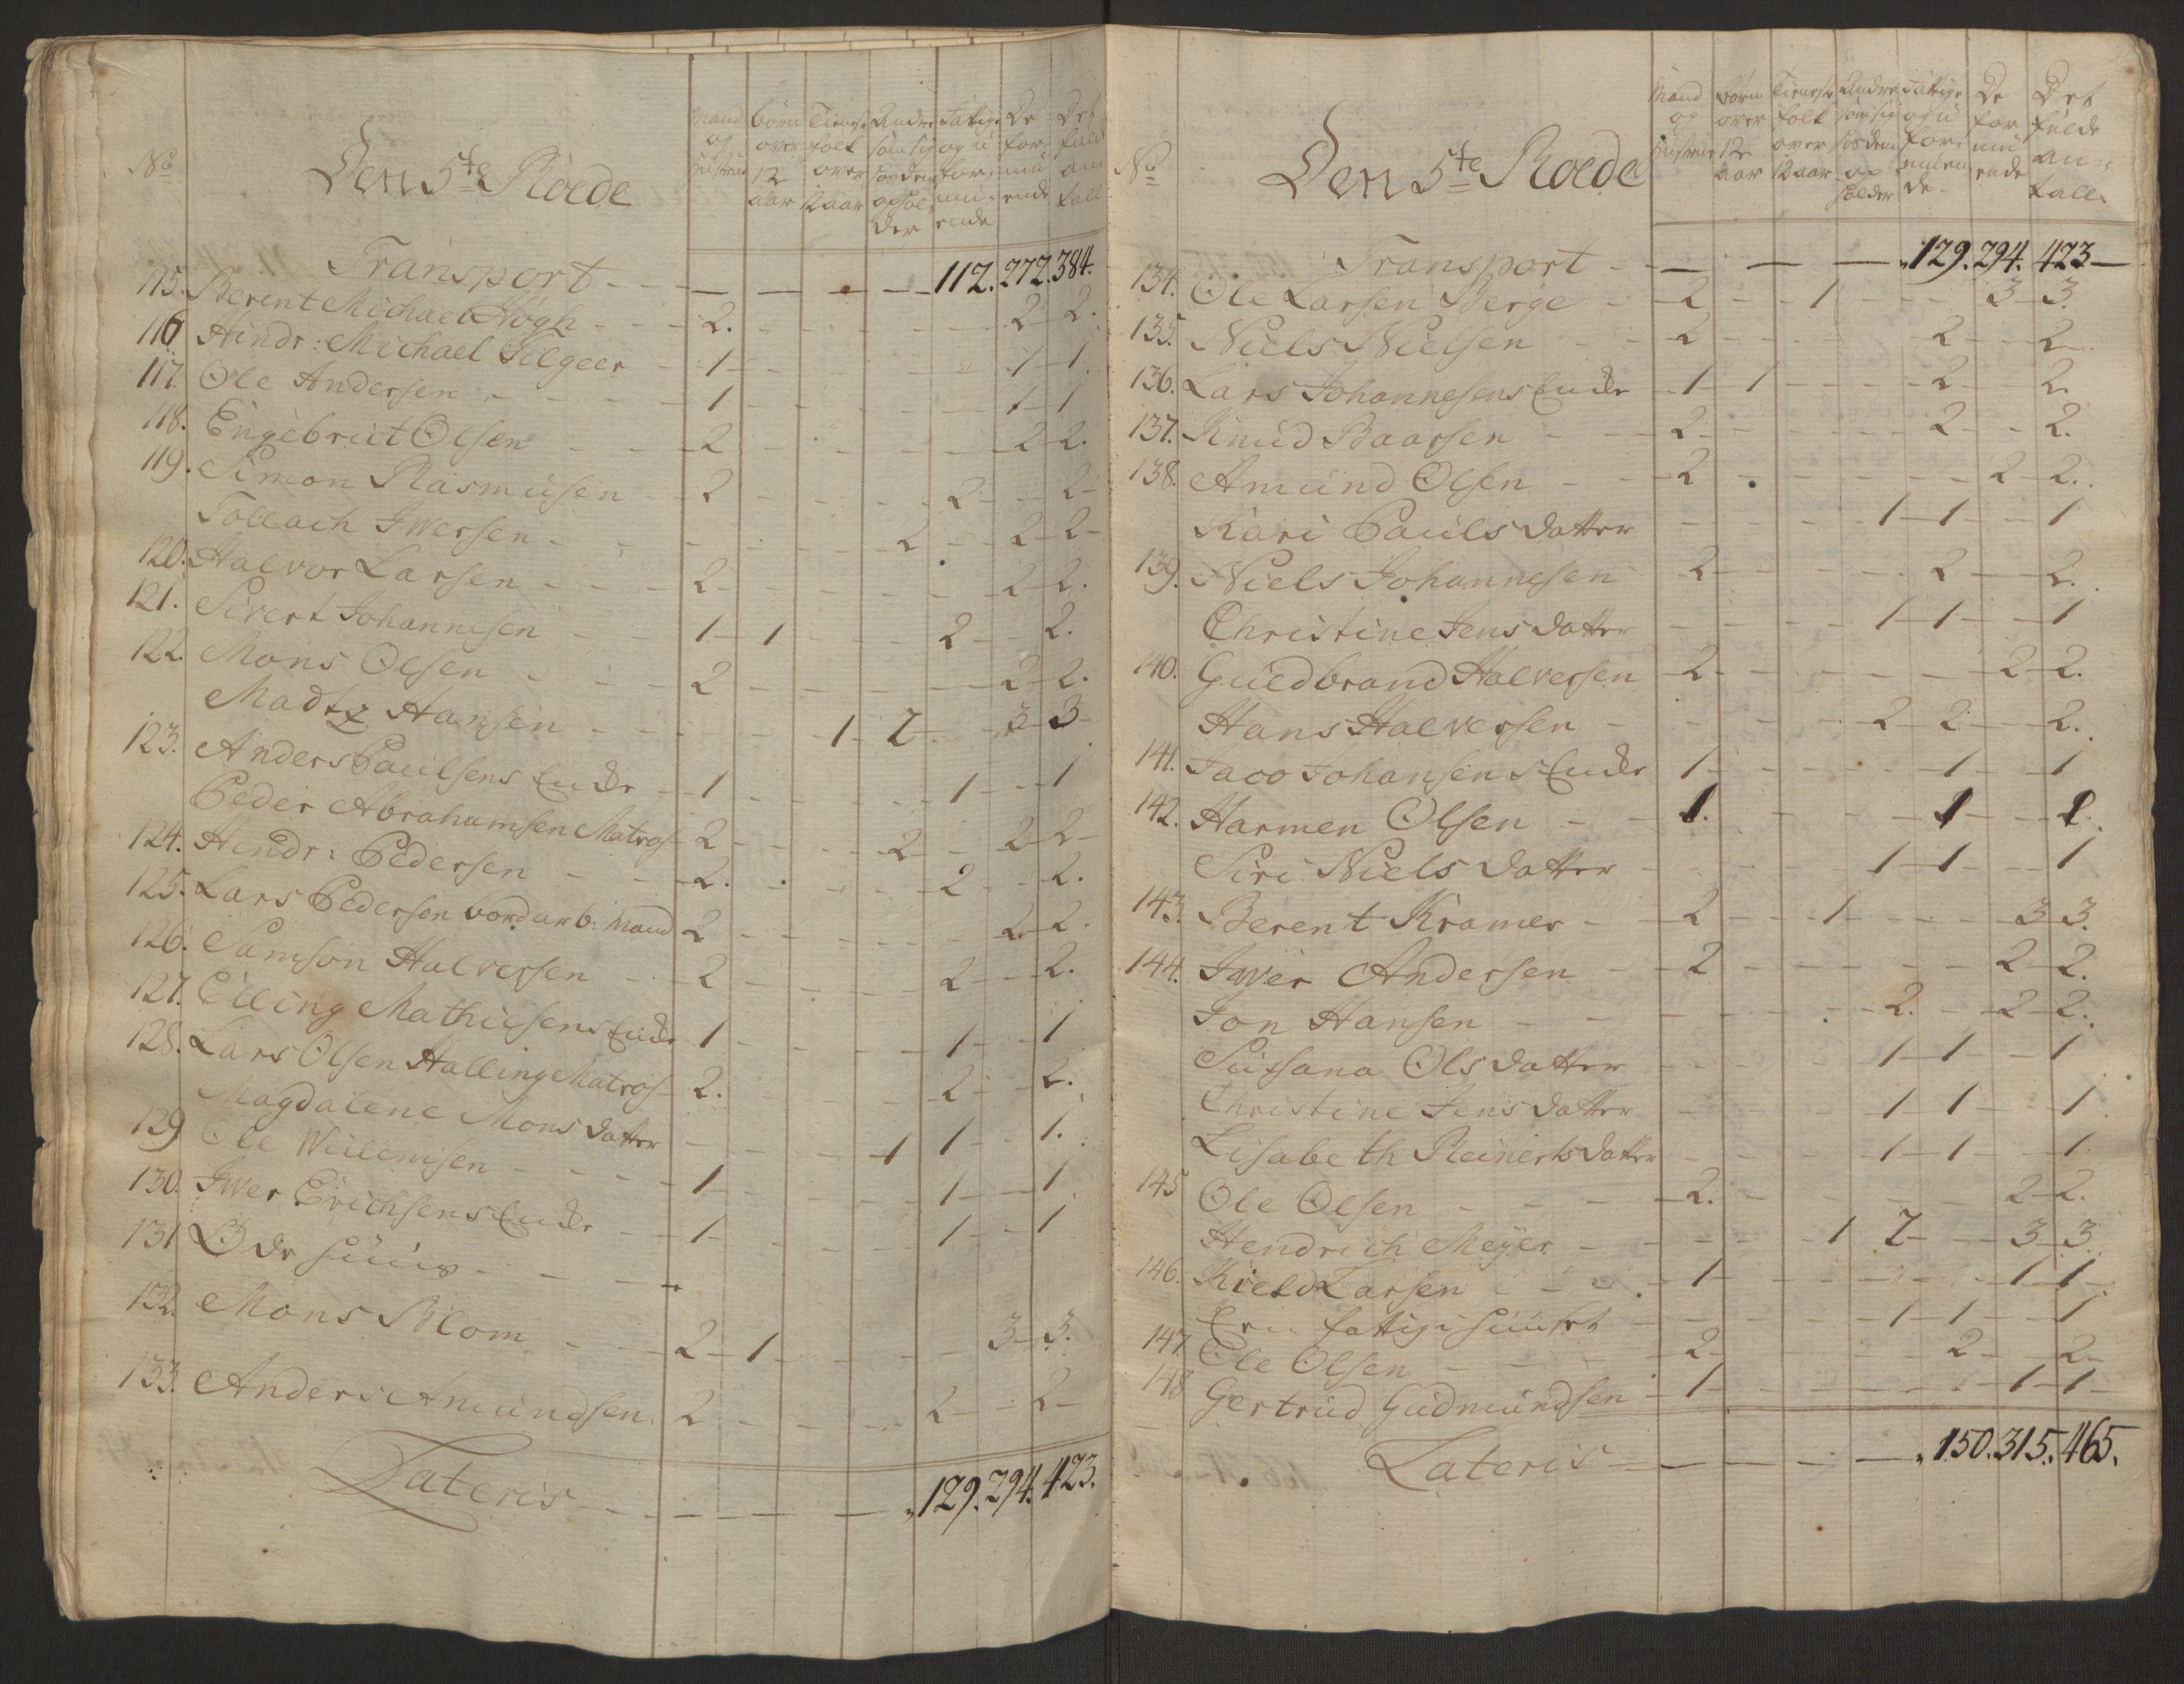 No
Den 5te Roede
Mand og Hustrue
börn over 12 aar
Tieneste folk over 12 aar
Andre som sig hos dem opholder
Fattige og u formuende
De formuende
Det fulde antall
Transport - - - 112. 272. 384.
115. Berent Michael Högh - - - 2. - - - 2 - 2.
116 Hindr: Michael Tilgeer - 1 - - - 1 - 1.
117. Ole Andersen - - - 1 - - - 1 - 1
118. Engebrit Olsen - - - 2 - - - 2 - 2.
119. Simon Rasmusen - 2 - - - 2 - - 2 -
Tollach Iwersen - - - 2 - - 2 - 2 -
120. Halvor Larsen - - - 2 - - - 2 - 2.
121. Sivert Johannesen - - 1 - 1 - - 2 - - 2.
122. Mons Olsen - - - 2 - - - 2 - 2.
Madtz Hansen - - - 1 - 2 - - 3 - 3 -
123. Anders Paulsens Encke - 1 - - - 1 - - 1
Peder Abrahamsen Matros - 2 - - - 2 - - 2 - 2 -
124. Hendr: Pedersen - - 2. - - - 2 - - 2.
125. Lars Pedersen bordarb: Mand 2 - - - 2 - 2.
126. Samson Halversen - 2 - - - 2 - - 2.
127. Elling Mathiesens Encke 1 - - - 1 - - 1
128. Lars Olsen Halling Matros - 2. - - - 2 - - 2.
Magdalene Mons datter - - - 1 1 - - 1.
129 Ole Willemsen - - - 1 - - - 1 - - 1
130. Iwer Erichsens Encke - 1 - - - 1 - - 1
131 Öde Huus - - -
132. Mons Blom - - - 2 - 1 - - - 3 - 3.
133. Anders Amundsen. 2 - - - 2 - - 2 -
Lateris - - - 129. 294. 423.
No
Den 5te Roede
Mand og Hustrue
börn over 12 aar
Tieneste folk over 12 aar
Andre som sig hos dem opholder
Fattige og u formuende
De formuende
Det fulde antall.
Transport - - - 129. 294. 423 -
134. Ole Larsen Berge - - 2 - - 1 - - - 3 - 3.
135. Niels Nielsen - - 2 - - - 2 - - 2 -
136. Lars Johannesens Encke - 1 - 1 - - - 2 - 2.
137. Knud Baarsen - - 2 - - - 2 - - 2.
138. Amund Olsen - - 2 - - - 2 - 2.
Kari Pauls datter - - - 1 - 1 - - 1
139. Niels Johannesen 2 - - - 2 - - 2.
Christine Jens datter - - - 1 - 1 - - 1
140. Guldbrand Halversen - 2 - - - 2 - 2.
Hans Halversen - - - 2 2 - - 2.
141. Jaco Johansens Encke 1 - - - 1 - - 1
142. Harmen Olsen - - 1. - - - 1 - - 1.
Siri Niels datter - - - 1 - 1 - - 1
143. Berent Kramer - - 2 - - 1 - - - 3 3.
144. Iwer Andersen - - 2 - - - 2 - 2.
Jon Hansen - - - 2. - - 2 - 2.
Susana Ols datter - - - 1 - 1 - - 1
Christine Jens datter - - - 1 - 1 - - 1.
Lisabeth Reinerts datter - - - 1 - 1 - - 1
145 Ole Olsen - - - 2. - - - 2 - 2.
Hendrich Meÿer - - - 1 2 - - 3 - 3.
146. Kield Larsen - - - 1 - - - 1 - 1 -
Een fattig i Huuset - - - 1 - 1 - - 1
147. Ole Olsen - - - 2 - - - 2 - - 2 -
148 Gertrud Gudmundsen - 1 - - - 1 - 1 -
Lateris - - - 150. 315. 465.